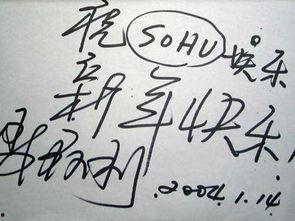 祝SOHU娱乐
新年快乐!
2004.1.14